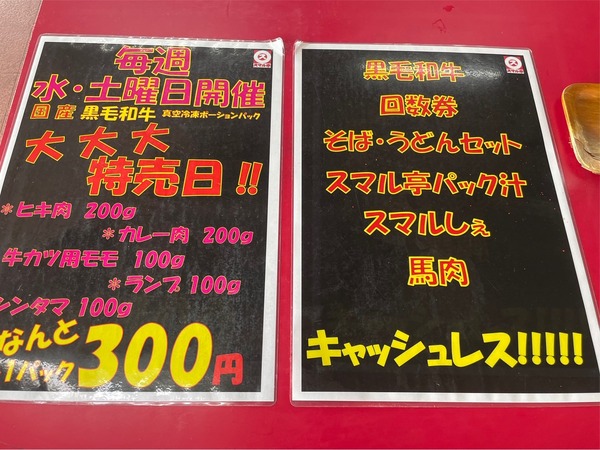 毎週
水・土曜日開催
国産 黒毛和牛 真空冷凍ポーションパック
大大大
特売日!!
*ヒキ肉 200g
*カレー肉 200g
牛カツ用モモ 100g
*ランプ100g
シンタマ 100g
なんと
1パック300円
黒毛和牛
回数券
そば・うどんセット
スマル亭パック汁
スマルしぇ
馬肉
キャッシュレス!!!!!